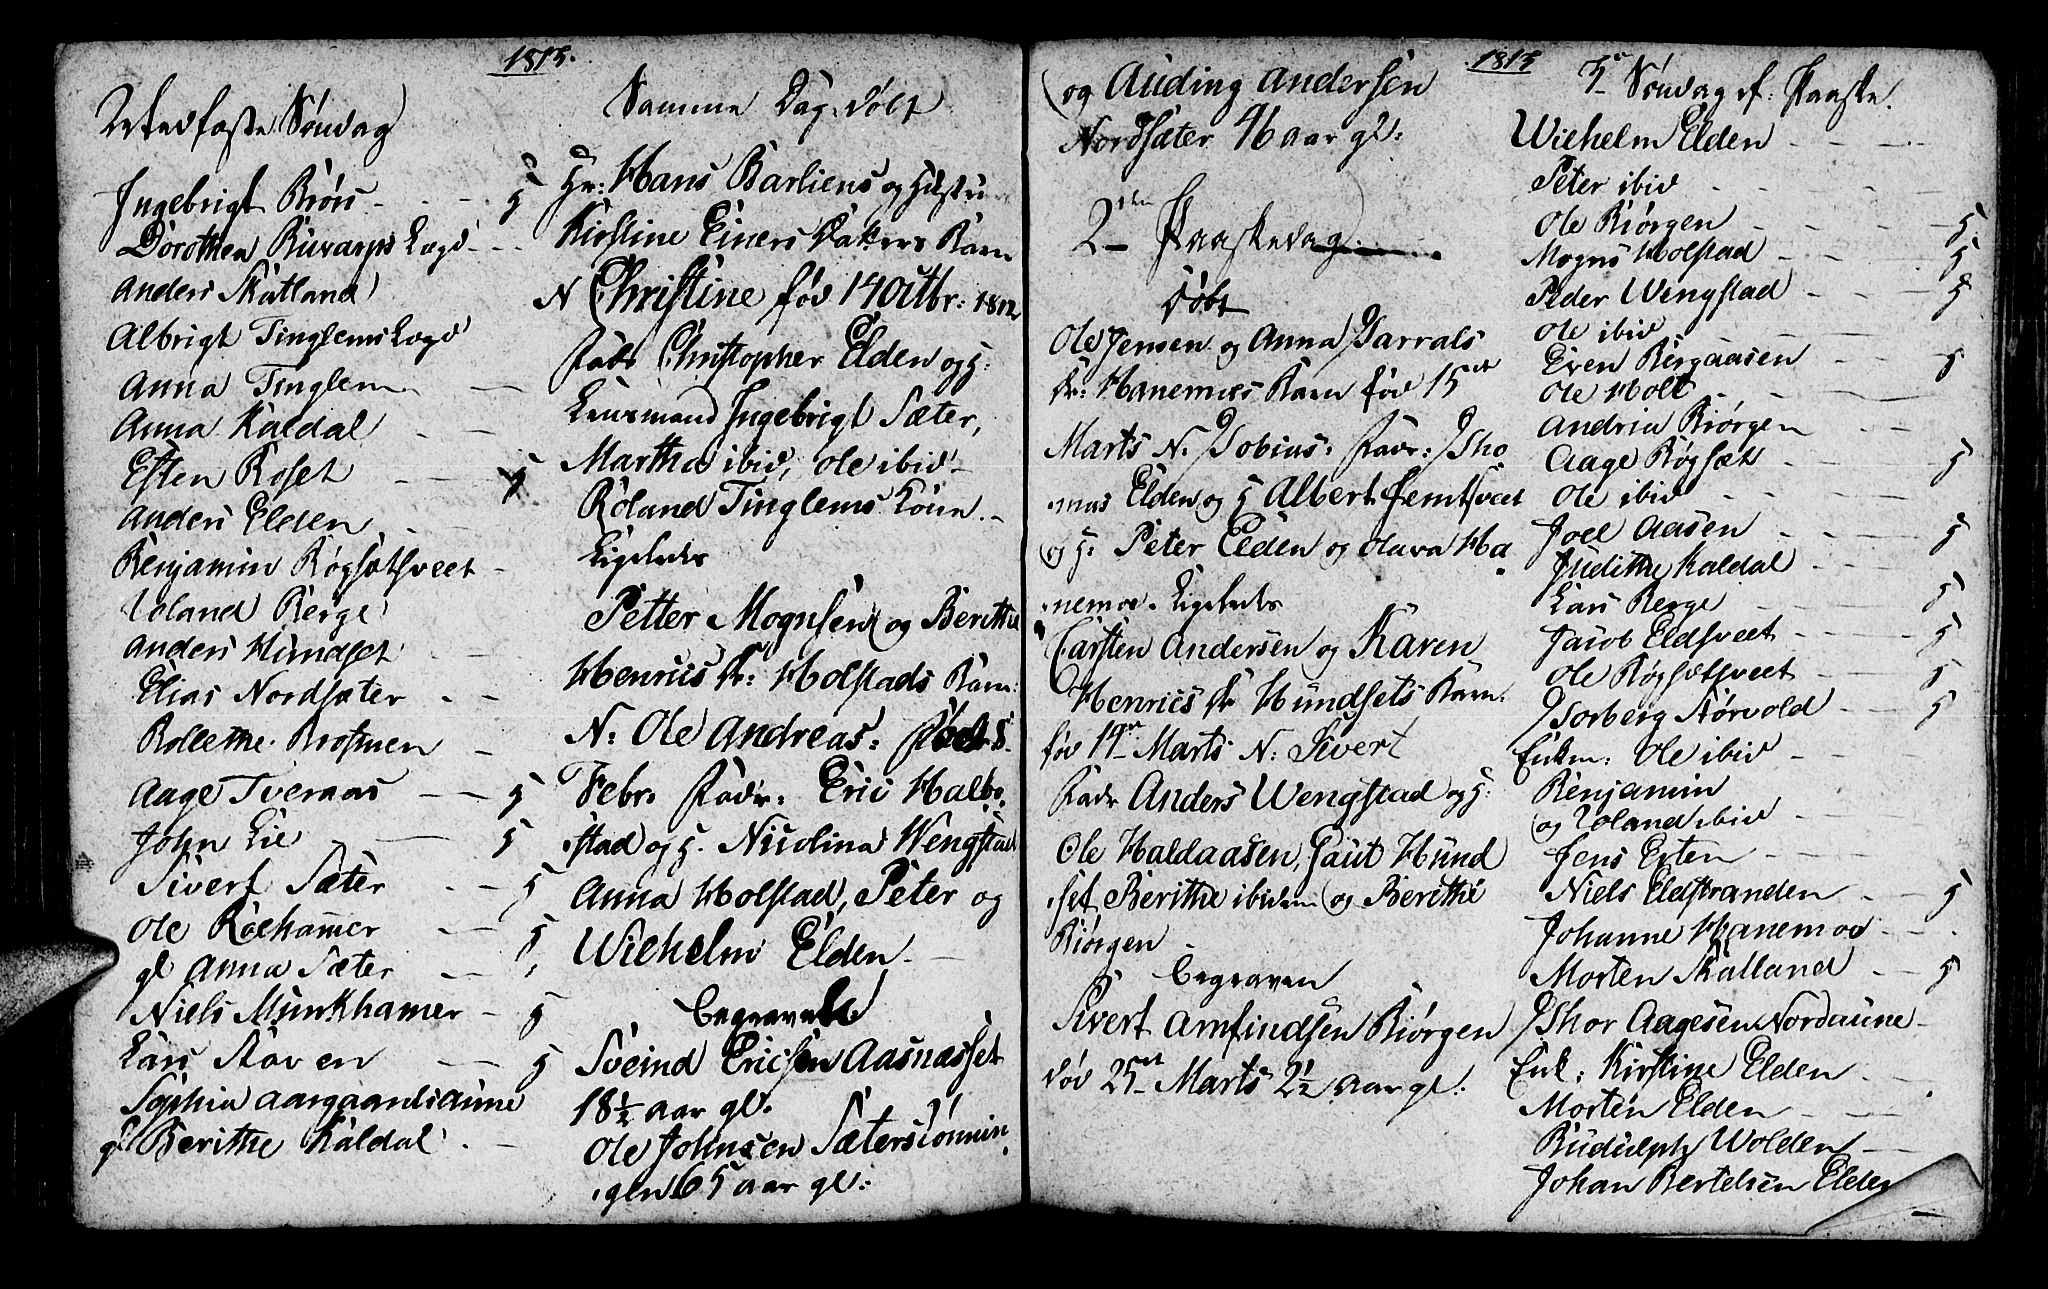 1813.
Midfaste Søndag
Ingebrigt Biørs - - - 5
Dorothea Buvarps Lægd - -
Anders Skatland
Albrigt Tinglems Lægd
Anna Tinglem - -
Anna Kaldal - -
Esten Roset - - 5
Anders Elden - -
Benjamin Bøgsætsveet -
Roland Berge
Anders Hundset -
Elias Nordsæter - -
Bollethe Brosmen -
Aage Tveraas - - 5
John Lie - - 5
Sivert Sæter - - 5
Ole Röekamer - - 5
gl Anna Sæter - -
Niels Munkhamer - 5
Lars Støven - - 5
Sophia Aargaardsaune
gl Berithe Kaldal - -
Samme Dag døbt
Hr: Hans Barliens og Hustru
Kirstine Einers Datters Barn
N Christine fød 14 Octbr: 1812
Fadr Christopher Elden og H:
Lensmand Ingebrigt Sæter,
Martha ibid, Ole ibid
Roland Tinglems Kone. -
Ligeledes
Petter Mognsen og Berithe
Henrics Dr: Holstads Barn:
N: Ole Andreas: Fød 8
Febr. Fadr: Eric Halbo
stad og H. Nicolina Wengstad
Anna Holstad, Peter og
Wilhelm Elden. -
Begravede
Sveind Ericsen Aasnæsset
18½ aar gl.
Ole Johnsen Sæterstømmin
gen 65 aar gl:
1813
og Auding Andersen
Nordsæter 46 aar gl:
2den Paaskedag
Døbt
Ole Jensen og Anna Zarrals
Dr: Hanemoes Barn fød 15de
Marts N. Tobias: Fadr: Tho
mas Elden og H Albert Jemtsveet
og H: Peter Elden og Olava Ha
nemoe. Ligeledes
Carsten Andersen og Karen
Henrics Dr Hundsets Barn
fød 19de Marts N: Sivert
Fadr Anders Wengstad og H:
Ole Haldaasen, Gaut Hund
set Berithe ibidem og Berithe
Biørgen -
Begraven
Sivert Arnfindsen Biörgen
død 25de Marts 2½ aar gl:
3de Søndag ef: Paaske.
Wilhelm Elden - - -
Peter ibid - - -
Ole Biørgen - - 5
Mogns Holstad - - 5
Peder Wengstad - - 5
Ole ibid - - -
Even Bergaasen - - 5
Ole Holt - -
Andria Biørgen - -
Aage Bøgsæt - - 5
Ole ibid - - -
Joel Aasen - - 5
Judithe Kaldal - -
Lars Berge - - 5
Jacob Eldsveet - - 5
Ole Bøgsætsveet - - 5
Torberg Størvold - - 5
Enkm: Ole ibid -
Benjamin
og Roland ibid - -
Jens Exten - - -
Niels Eldstranden - 5
Johanne Hanemoe - -
Morten Skatland - 5
Thor Aagesen Nordaune -
Enk: Kirstine Elden - -
Morten Elden - -
Rudulph Wolden - -
Johan Bertelsen Elden